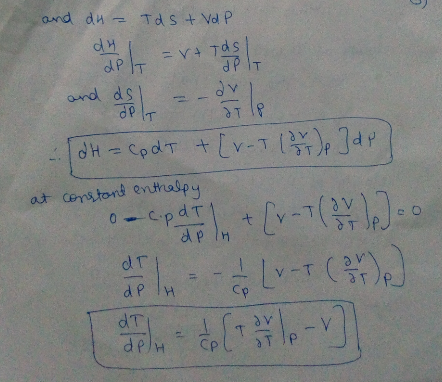 and dH = TdS + VdP
dH/dP |_T = V + T dS/dP |_T
and dS/dP |_T = - ∂V/∂T |_P
∴ dH = CpdT + [V-T (∂V/∂T)_P ] dP
at constant enthalpy
0 - C.p dT/dP |_H + [V-T(∂V/∂T)_P] = 0
dT/dP |_H = - 1/Cp [V-T (∂V/∂T)_P]
dT/dP |_H = 1/Cp [T ∂V/∂T |_P - V]